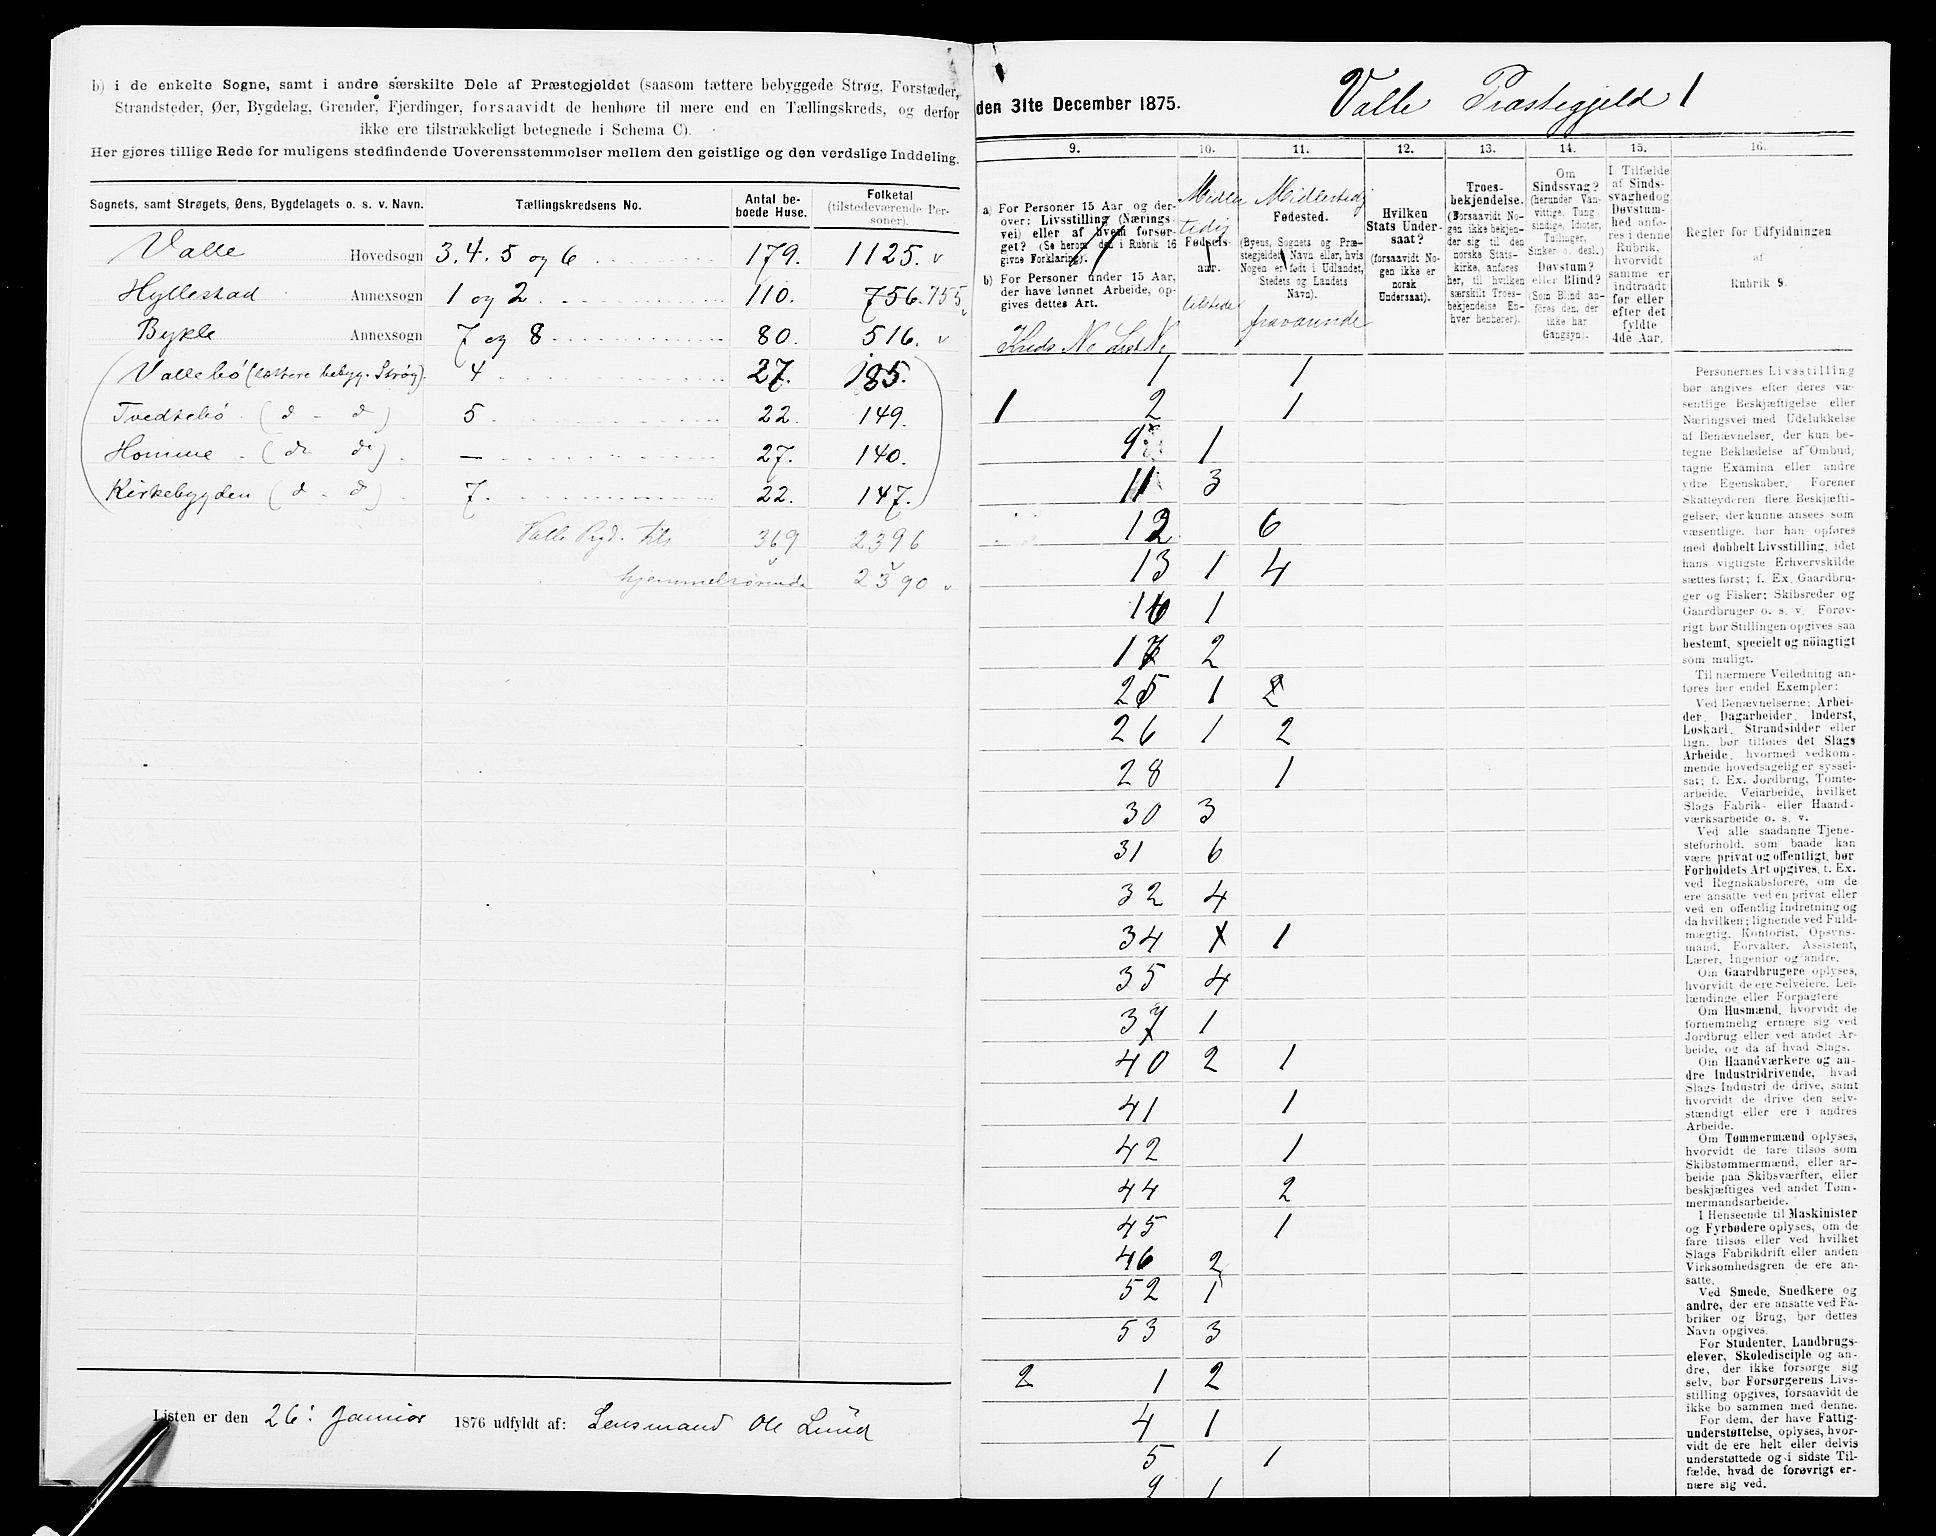 b) i de enkelte Sogne, samt i andre særskilte Dele af Præstegjeldet (saasom tættere bebyggede Strøg, Forstæder,
Strandsteder, Øer, Bygdelag, Grender, Fjerdinger, forsaavidt de henhøre til mere end en Tællingskreds, og derfor
ikke ere tilstrækkeligt betegnede i Schema C).
Her gjøres tillige Rede for muligens stedfindende Uoverensstemmelser mellem den geistlige og den verdslige Inddeling.
Sognets, samt Strøgets, Øens, Bygdelagets o. s. v. Navn. Tællingskredsens No. Antal beboede Huse. Folketal (tilstedeværende Personer).
Valle Hovedsogn 3. 4. 5 og 6 179. 1125. v
Hyllestad Annexsogn 1 og 2 110. 756. 755
Bykle Annexsogn 7 og 8 80. 516. v
Vallebø (tættere bebyg. Strøg). 4 27. 185.
Tvedtebø (d - d) 5 22. 149.
Homme - (do do) — 27. 140.
Kirkebygden (d - d) 7. 22. 147.
Valle Pgd. tils 369 2396
hjemmehørende 2390 v
Listen er den 26. Januar 1876 udfyldt af: Lensmand Ole Lund
den 31te December 1875.
Valle Præstegjeld 1
9. 10. 11. 12. 13. 14. 15. 16.
a) For Personer 15 Aar og derover: Livsstilling (Næringsvei) eller af hvem forsørget? (Se herom den i Rubrik 16 givne Forklaring).
b) For Personer under 15 Aar, der have lønnet Arbeide, opgives dettes Art.
Kreds No List No
Midlertidig
Fødselsaar.
tilstede
Midlertidig
Fødested.
(Byens, Sognets og Præstegjeldets Navn eller, hvis Nogen er født i Udlandet, Stedets og Landets Navn).
fraværende
Hvilken Stats Undersaat?
(forsaavidt Nogen ikke er norsk Undersaat).
Troesbekjendelse.
(Forsaavidt Nogen ikke bekjender sig til den norske Statskirke, anføres her, til hvilken særskilt Troesbekjendelse Enhver henhører).
Om Sindssvag? (herunder Vanvittige, Tungsindige, Idioter, Tullinger, Sinker o. desl.) Døvstum? eller Blind? (Som Blind anføres den, der ikke har Gangsyn).
I Tilfælde af Sindssvaghed og Døvstumhed anføres i denne Rubrik, hvorvidt samme er indtraadt før eller efter det fyldte 4de Aar.
Regler for Udfyldningen
af
Rubrik 9.
1 1
1 2 1
9 1
11 3
12 6
13 1 4
16 1
17 2
25 1 2
26 1 2
28 1
30 3
31 6
32 4
34 1 1
35 4
37 1
40 2 1
41 1
42 1
44 2
45 1
46 2
52 1
53 3
2 1 2
4 1
5 1
9 1
Personernes Livsstilling
bør angives efter deres væ-
sentlige Beskjæftigelse eller
Næringsvei med Udelukkelse
af Benævnelser, der kun be-
tegne Beklædelse af Ombud,
tagne Examina eller andre
ydre Egenskaber. Forener
Skatteyderen flere Beskjæfti-
gelser, der kunne ansees som
væsentlige, bør han opføres
med dobbelt Livsstilling, idet
hans vigtigste Erhvervskilde
sættes først; f. Ex. Gaardbru-
ger og Fisker; Skibsreder og
Gaardbruger o. s. v. Forøv-
rigt bør Stillingen opgives saa
bestemt, specielt og nöiagtigt
som muligt.
Til nærmere Veiledning an-
føres her endel Exempler:
Ved Benævnelserne: Arbei-
der, Dagarbeider, Inderst,
Løskarl, Strandsidder eller
lign. bør tilføies det Slags
Arbeide, hvormed vedkom-
mende hovedsagelig er syssel-
sat; f. Ex. Jordbrug, Tomte-
arbeide, Veiarbeide, hvilket
Slags Fabrik- eller Haand-
værksarbeide o. s. v.
Ved alle saadanne Tjene-
steforhold, som baade kan
være privat og offentligt, bør
Forholdets Art opgives, t. Ex.
ved Regnskabsførere, om de
ere ansatte ved en privat eller
ved en offentlig Indretning og
da hvilken; lignende ved Fuld-
mægtig, Kontorist, Opsyns-
mand, Forvalter, Assistent,
Lærer, Ingeniør og andre.
Om Gaardbrugere oplyses,
hvorvidt de ere Selveiere, Lei-
lændinge eller Forpagtere
Om Husmænd, hvorvidt de
fornemmelig ernære sig ved
Jordbrug eller ved andet Ar-
beide, og da af hvad Slags.
Om Haandværkere og an-
dre Industridrivende, hvad
Slags Industri de drive, samt
hvorvidt de drive den selv-
stændigt eller ere i andres
Arbeide.
Om Tømmermænd oplyses,
hvorvidt de fare tilsøs som
Skibstømmermænd, eller ar-
beide paa Skibsværfter, eller
beskjæftiges ved andet Tøm-
mermandsarbeide.
I Henseende til Maskinister
og Fyrbødere oplyses, om de
fare tilsøs eller ved hvilket
Slags Fabrikdrift eller anden
Virksomhedsgren de ere an-
satte.
Ved Smede, Snedkere og
andre, der ere ansatte ved Fa-
briker og Brug, bør dettes
Navn opgives.
For Studenter, Landbrugs-
elever, Skoledisciple og an-
dre, der ikke forsørge sig
selv, bør Forsørgerens Livs-
stilling opgives, forsaavidt de
ikke bo sammen med denne.
For dem, der have Fattig-
understøttelse, oplyses, hvor-
vidt de ere helt eller delvis
understøttede og i sidste Til-
fælde, hvad de forøvrigt er-
nære sig ved.